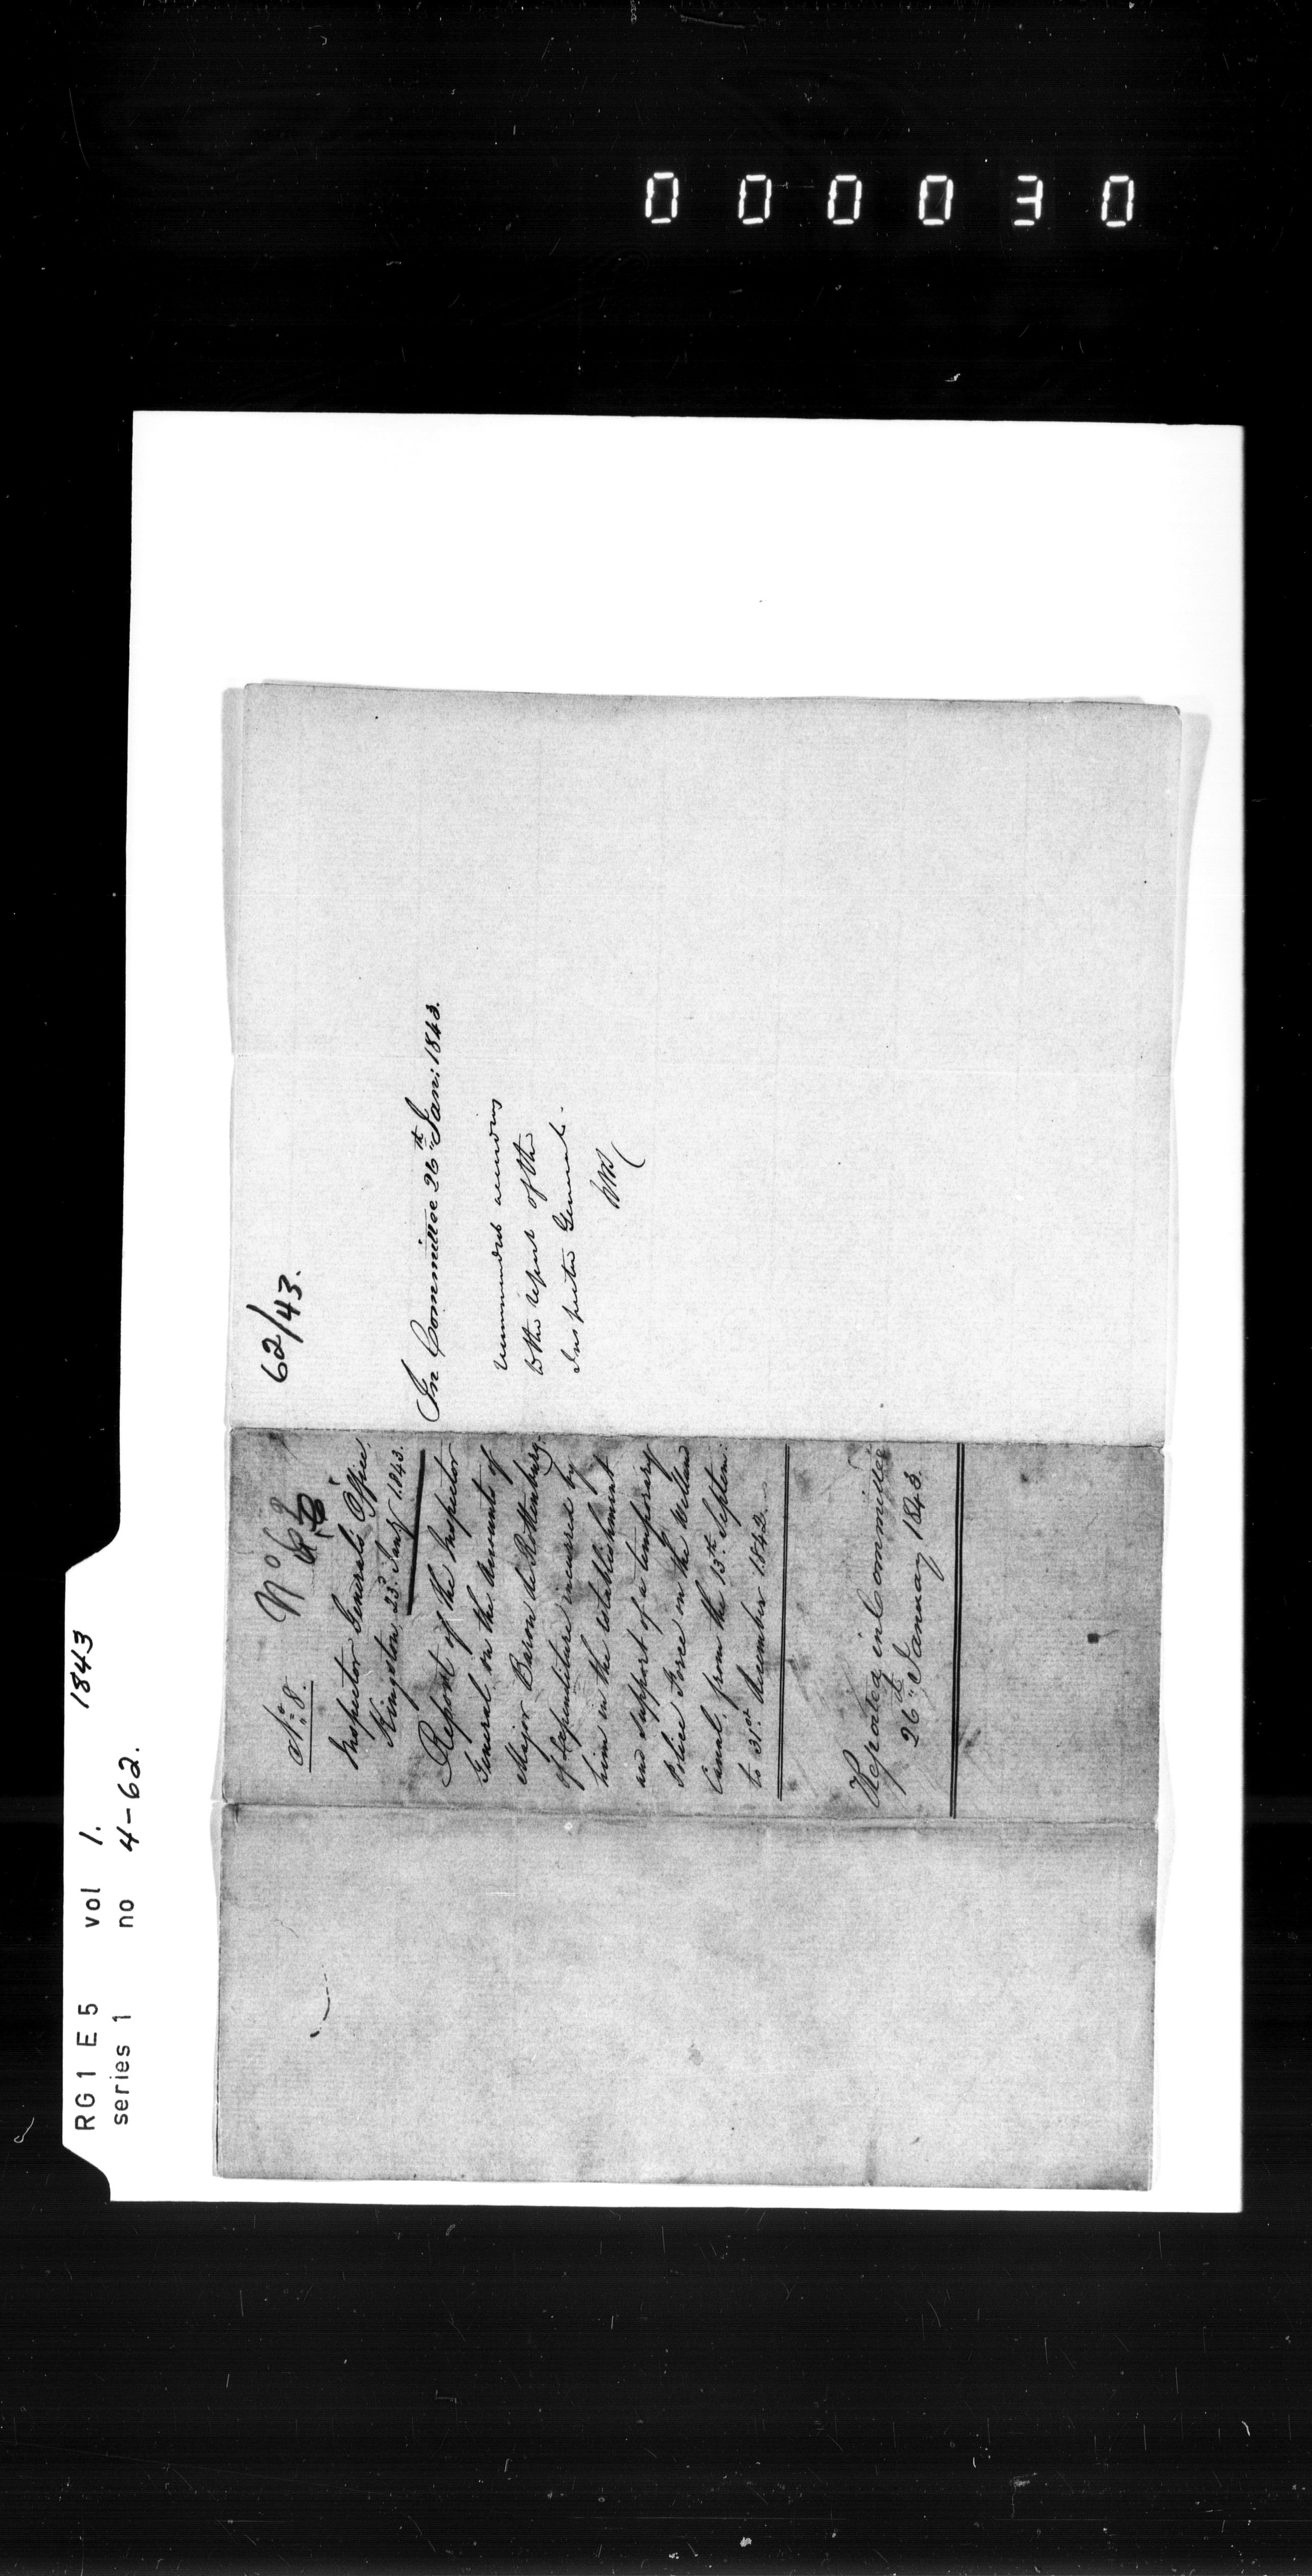 000030
RG1 E5 vol 1. 1843
series 1 no 4-62.
62/43.
In Committee 26th Jan: 1843.
recommended according
to the report of the
Inspector General.
No 8.
No 62
Inspector Generals Office,
Kingston 23d Jany 1843.
Report of the Inspector
General on the Accounts of
Major Baron de Rottenburg
of Expenditure incurred by
him in the establishment
and support of a temporary
Police Force on the Welland
Canal, from the 13th Septem:
to 31st December 1842.
Reported in Committee
26th January 1843.